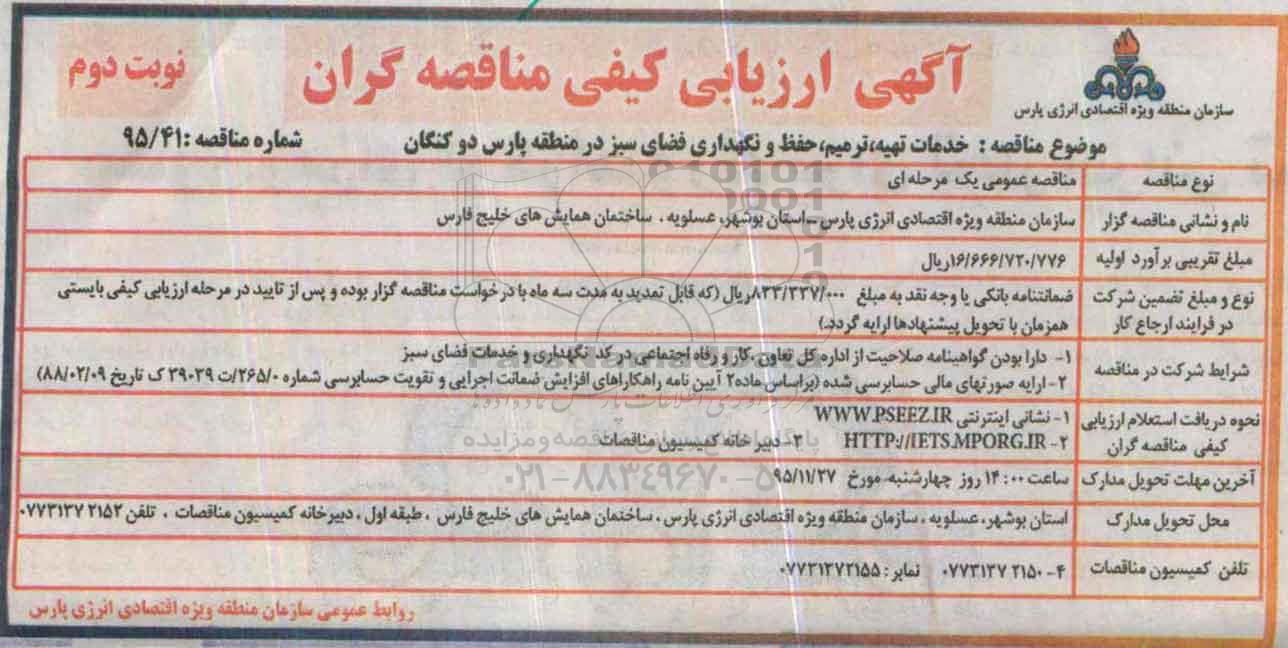 آگهی ارزیابی کیفی مناقصه گران
نوبت دوم
سازمان منطقه ویژه اقتصادی انرژی پارس
موضوع مناقصه : خدمات تهیه،ترمیم،حفظ و نگهداری فضای سبز در منطقه پارس دو کنگان
شماره مناقصه :۹۵/۴۱
نوع مناقصه
مناقصه عمومی یک مرحله ای
نام و نشانی مناقصه گزار
سازمان منطقه ویژه اقتصادی انرژی پارس-استان بوشهر، عسلویه ، ساختمان همایش های خلیج فارس
مبلغ تقریبی برآورد اولیه
۱۶/۶۶۶/۷۲۰/۷۷۶ریال
نوع و مبلغ تضمین شرکت
در فرایند ارجاع کار
ضمانتنامه بانکی یا وجه نقد به مبلغ ۸۳۳/۳۳۷/۰۰۰ریال (که قابل تمدید به مدت سه ماه با درخواست مناقصه گزار بوده و پس از تایید در مرحله ارزیابی کیفی بایستی
همزمان با تحویل پیشنهادها ارایه گردد.)
شرایط شرکت در مناقصه
۱- دارا بودن گواهینامه صلاحیت از اداره کل تعاون ،کار و رفاه اجتماعی در کد نگهداری و خدمات فضای سبز
۲- ارایه صورتهای مالی حسابرسی شده (براساس ماده۲ آیین نامه راهکارهای افزایش ضمانت اجرایی و تقویت حسابرسی شماره ۲۶۵/۰/ت ۳۹۰۳۹ ک تاریخ ۸۸/۰۲/۰۹)
نحوه دریافت استعلام ارزیابی
کیفی مناقصه گران
۱- نشانی اینترنتی WWW.PSEEZ.IR
۲- HTTP://IETS.MPORG.IR ۳- دبیر خانه کمیسیون مناقصات
آخرین مهلت تحویل مدارک
ساعت ۱۴:۰۰ روز چهارشنبه مورخ ۹۵/۱۱/۲۷
محل تحویل مدارک
استان بوشهر، عسلویه ، سازمان منطقه ویژه اقتصادی انرژی پارس ، ساختمان همایش های خلیج فارس ، طبقه اول ، دبیرخانه کمیسیون مناقصات ، تلفن ۰۷۷۳۱۳۷ ۲۱۵۲
تلفن کمیسیون مناقصات
۴-۰۷۷۳۱۳۷ ۲۱۵۰ نمابر : ۰۷۷۳۱۳۷۲۱۵۵
روابط عمومی سازمان منطقه ویژه اقتصادی انرژی پارس
۰۲۱-۸۸۳۴۹۶۷۰-۵